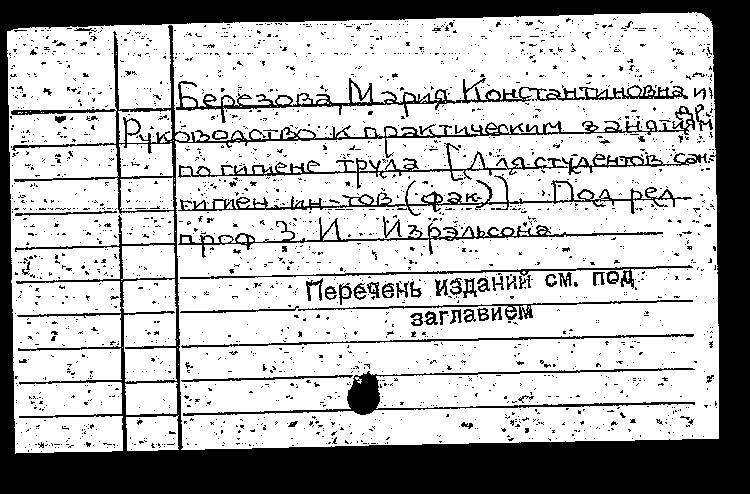 Березова, Мария Константиновна и др.
Руководство к практическим занятиям
по гигиене труда [Для студентов сан.-
гигиен. ин-тов (фак)]. Под ред.
проф. З. И. Израэльсона.
Перечень изданий см. под
заглавием